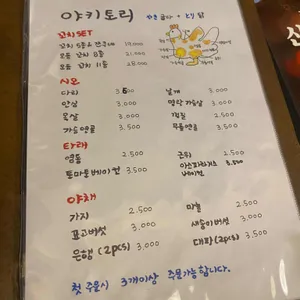 야키토리
야끼 굽다 + 토리 닭
꼬치SET
꼬치 5종 19,000
모듬 꼬치 8종 21,000
모듬 꼬치 11종 28,000
시오
다리 3.500 날개 3.000
안심 3.000 명란 가슴살 3.000
목살 3.000 껍질 2.500
가슴연골 3.500 무릎연골 3.500
타래
염통 2.500 근위 2.500
토마토베이컨 3.500 아스파라거스 베이컨 3.500
야채
가지 2.500 마늘 2.500
표고버섯 3.000 새송이버섯 3.000
은행 (2pcs) 3.000 대파 (2pcs) 3.500
첫 주문시 3개이상 주문가능합니다.